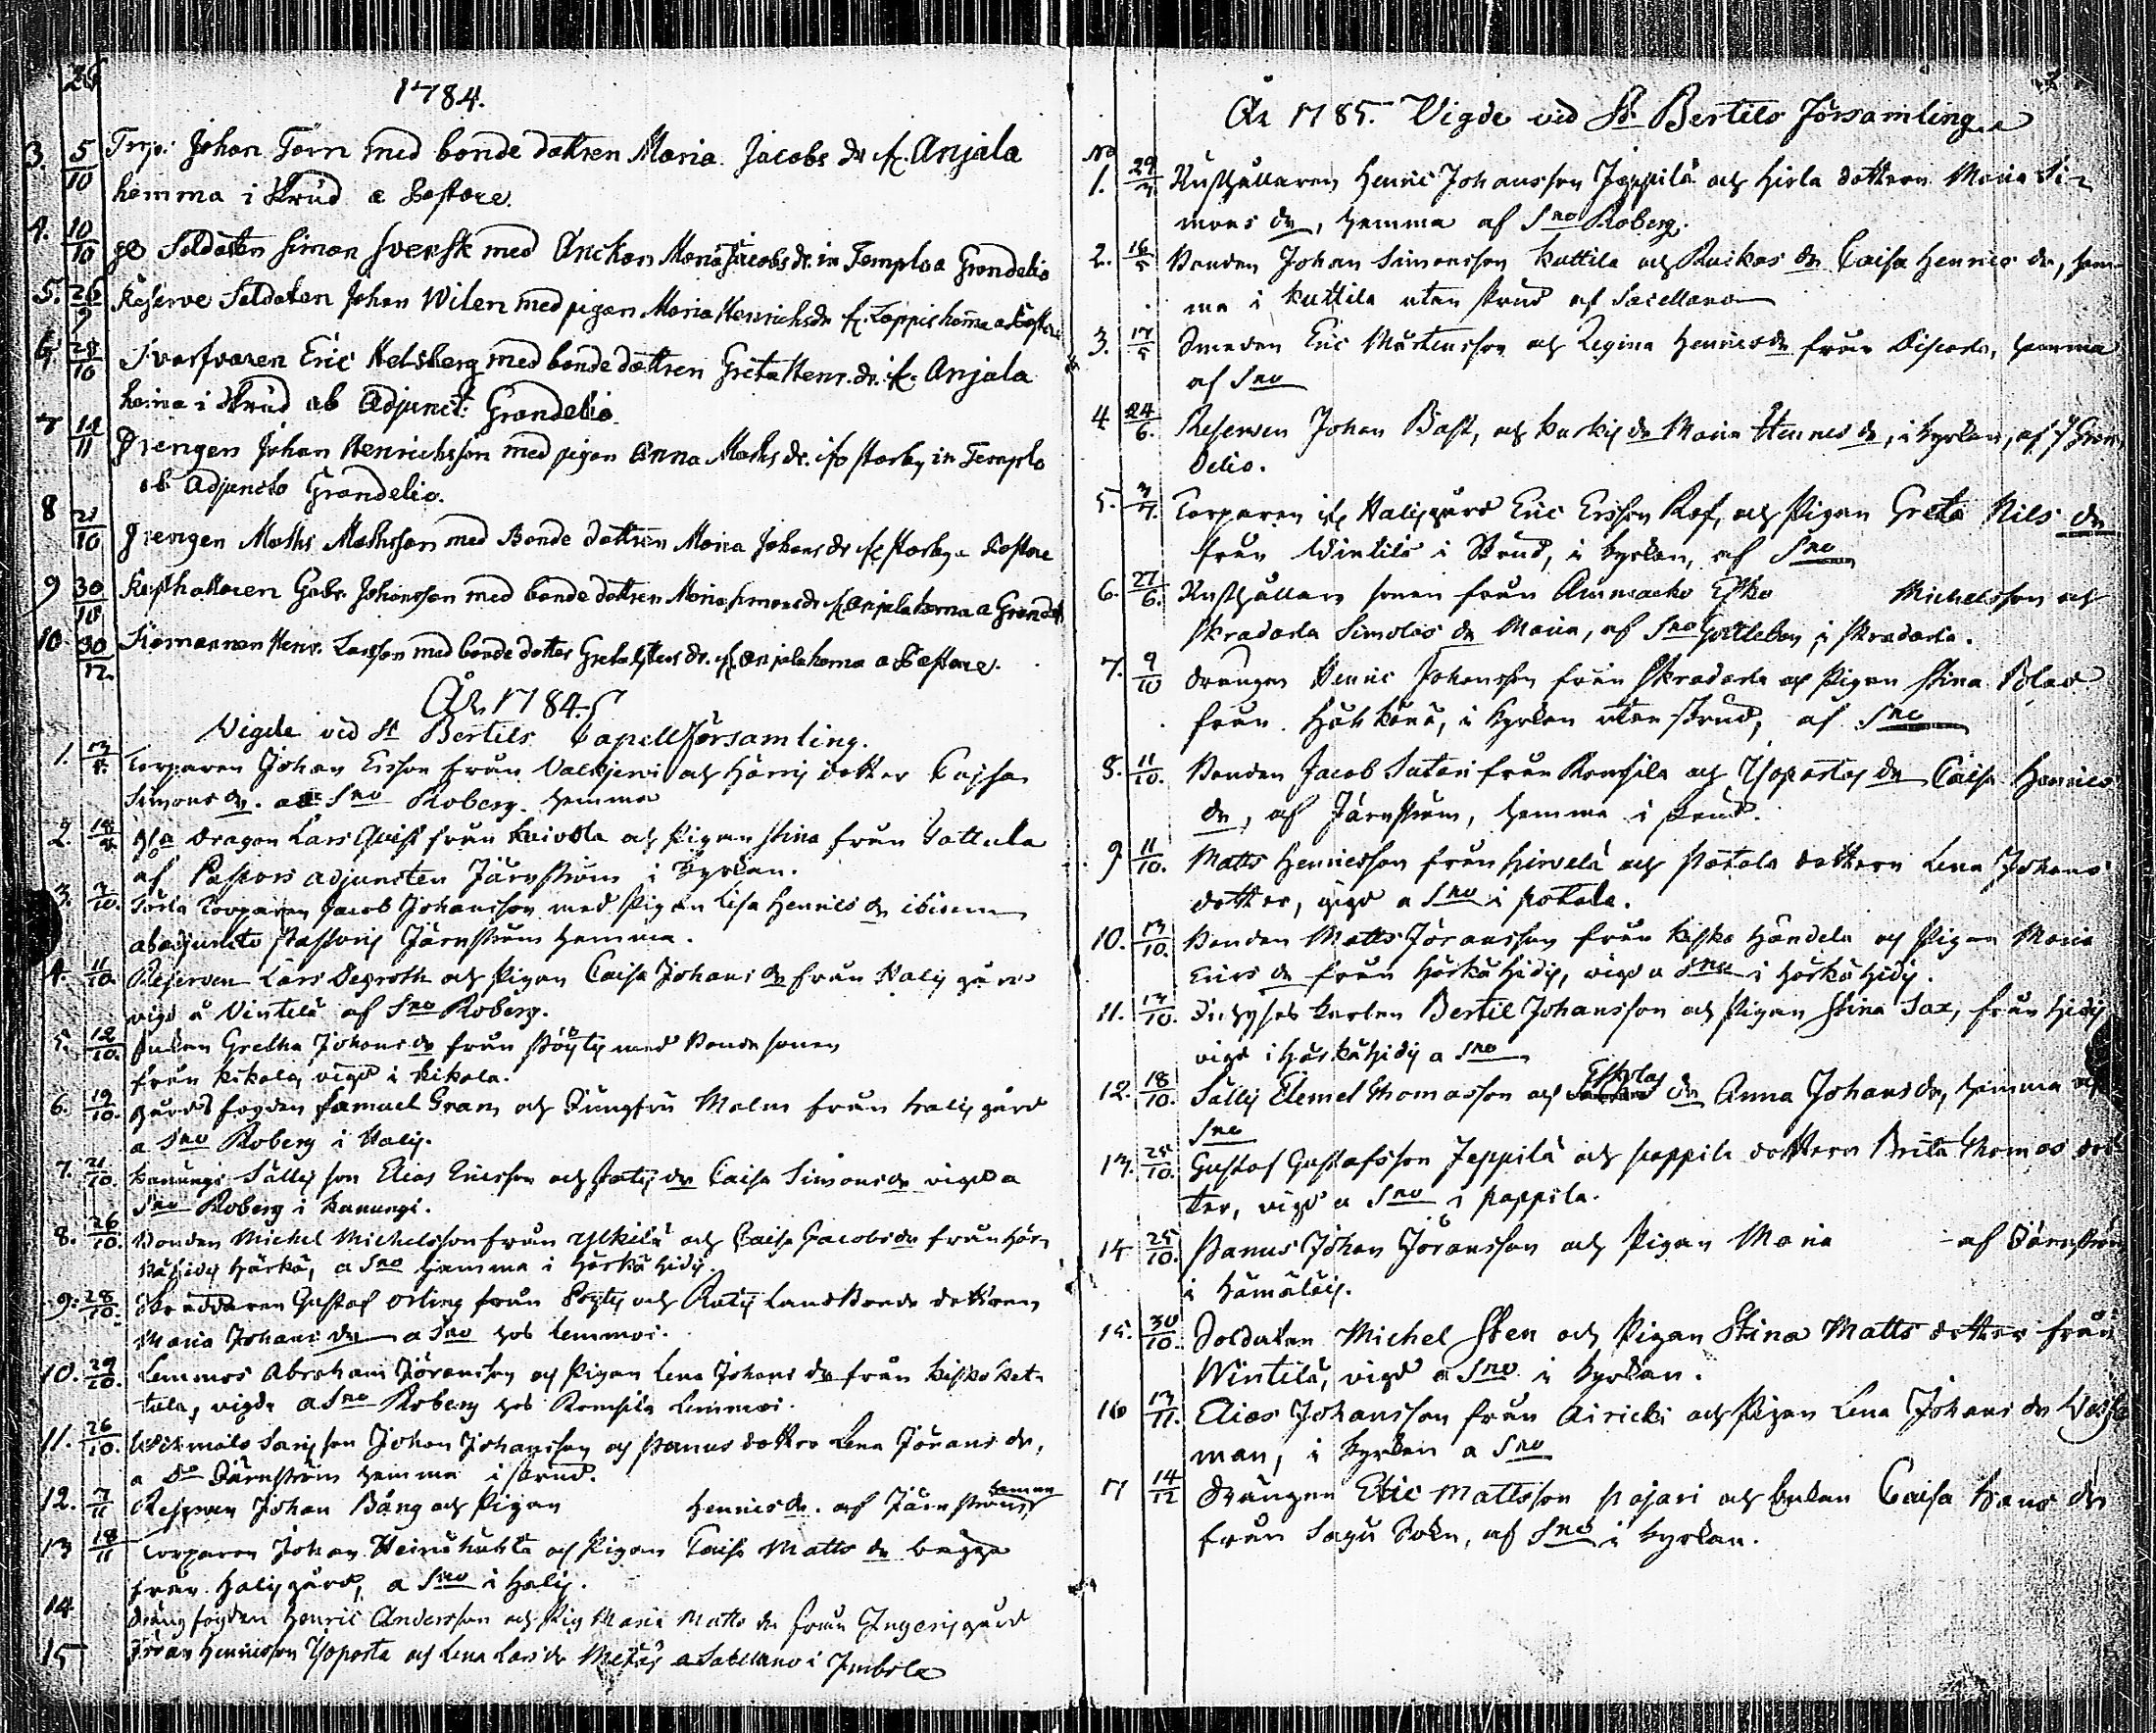 26
1784.
3. 5/10 Trp: Johan Törn med bonde dottren Maria Jacobs dr fr. Anjala
hemma i Skrud a Pastore.
4. 10/10 Soldaten Simon Svensk med Änckan Maria Jacobs dr. in Templo a Grondelio
5. 26/9 Reserve Soldaten Johan Wilen med pigan Maria Henrichsdr fr. Lappis hema a Pastore
6. 28/10 Svarfvaren Eric Helsberg med bonde dottren Greta Henr. dr. fr. Anjala
hema i Skrud ab Adjunct: Grondelio.
7 11/11 Drengen Johan Henrichsson med pigan Anna Maths dr. in Templo
ab Adjuncto Grondelio.
8 21/10 Drengen Maths Mathsson med Bonde dottren Maria Johans dr a Pastore
9 30/10 Gabr. Johansson med bonde dottren Maria Simonsdr fr. Anjala hema a Grondel
10 30/12. Henr. Larsson med bonde dotter Greta dr. fr. Anjala hema a Pastore.
År 1784.
Vigde vid St Bertils Capell församling.
1. Torparen Johan Ersson från Valkjerwi och Härrij dotter Cajsa
Simons dr. a Sno Roberg. hemma
2. 18 Dragon Lars Qvist från Kaivola och Pigan Stina från Tattula
af Pastors adjuncten Järnström i Kyrkan.
3. 7/10. Torparen Jacob Johansson med Pigan Lisa Henrics dr ibidem
ab adjuncto Pastoris Järnström hemma.
4. 11/10. Reserven Lars Degroth och Pigan Caisa Johans dr från Halij gård
vigd å Vintilä af Sno Roberg.
5. 12/10. Enkan Gretha Johans dr från Pöytij med Bonde sonen
från Kikala, vigd i Kikala.
6. 19/10. Gårdsfogden Samuel Gran och Jungfru Malm från Halij gård
a Sno Roberg i Halij.
7. 21/10. Kanungi Sällij son Elias Ericsson och dr Caisa Simons dr vigd a
Sno Roberg i Kanungi.
8. 26/10. Bonden Michel Michelsson från Ylkilä och Caisa Jacobs dr från Hör-
kähidij Härkä, a Sno hemma i Hörkähidij.
9. 28/10. Skräddaren Gustaf Orling från Pöytij och Landbonde dottren
Maria Johans dr a Sno hos Lemmoi.
10. 29/10. Lemmos Abraham Jöransson och Pigan Lena Johans dr från Kisko Ket-
tula, vigde a Sno Roberg hos Romsila Lemmoi.
11. 26/10. son Johan Johansson och Panus dotter Lena Jörans dr,
a Do Järnström hemma i Skrud.
12. 7/11 Reserven Johan Bång och Pigan Henrics dr. af Järnström hemma
13 18/11 Torparen Johan Heinähuhta och Pigan Caisa Matts dr begge
från Halij gård, a Sno i Halij.
14 Drängfogden Henric Andersson och Pig Maria Matts dr från Ingeris gård
15 Jöran Henricsson Yoposta och Lena Lars dr a Sacellano i
År 1785. Vigde vid St Bertils församling.
No
1. 29 Rusthållaren Henric Johansson Jeppilä och Hirla dottren Maria Si-
mons dr, hemma af Sno Roberg.
2. 16/5 Bonden Johan Simonsson Kuttila och Ruikas dr Caisa Henrics dr, hem-
ma i Kuttila utan skrud af Sacellano
3. 17/5 Smeden Eric Mårtensson och Regina Henrics dr från, hemma
af Sno
4 24/6. Reserven Johan Bast, och dr Maria Hennes dr, i Kyrkan, af J Gron-
delio.
5. Torparen Halij gård Eric Ersson Rof, och Pigan Greta Nils dr
från Wintilä i Skrud, i Kyrkan, af Sno
6. 27/6. Rusthållare sonen från Ammacko Esko Michelsson och
Skradarla Simolas dr Maria, af Sno i Skradarla.
7. 9/10 Drängen Henric Johansson från Skradarla och Pigan Stina Polas
från, i Kyrkan utan skrud, af Sno
8. 11/10. Bonden Jacob Sutari från Romsila och Yopostas dr Caisa Henrics
dr, af Järnström, hemma i skrud.
9 11/10. Matts Henricsson från Hirvelä och Potola dottern Lena Johans
dotter, vigd a Sno i Potola.
10. 13/10. Bonden Matts Jöransson från Kisko Händela och Pigan Maria
Erics dr från Hörkähidij, vigd a Sno i Hörkähidij.
11. 13/10. karlen Bertil Johansson och Pigan Stina Sax, från Hidij
vigd i Hörkähidij a Sno
12. 18/10. Sällij Elemel Thomasson och Eskolas dr Anna Johans dr, hemma af
Sno
13. 25/10. Gustaf Gustafsson Jeppilä och Pappila dottren Brita Thomas dot-
ter, vigd a Sno i Pappila.
14 25/10. Panus Johan Jöransson och Pigan Maria - af Järnström
i Hämäläis.
15. 30/10. Soldaten Michel Sten och Pigan Stina Matts dotter från
Wintilä, vigd a Sno i Kyrkan.
16 13/11. Elias Johansson från Airicki och Pigan Lena Johans dr
man, i Kyrkan a Sno
17 14/12 Drängen Eric Mattsson Pajari och Enkan Caisa Hans dr
från Sagu Sokn, af Sno i Kyrkan.